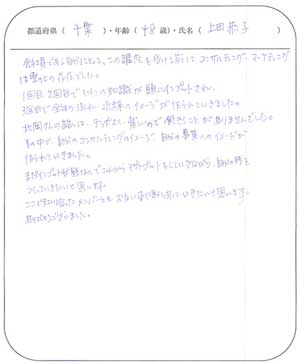 都道府県（ 千葉 ）・年齢（ 48 歳）・氏名（ 上田恭子 ）
会社員である自分にとって、この講座を受ける前って コンサルティング、マーケティング
は雲の上の存在でした。
1回目、2回目で の知識が頭にインプットされ、
3回目で全体の流れ、近未来のイメージが作られていきました。
北岡さんの話しは、テンポよく、楽しいので飽きることがありませんでした。
私の中で、自分のコンサルティングのイメージ、自分の事業へのイメージが
作られていきました。
まだインプット状態なので これから アウトプットをしていきながら、自分の糧を
つくっていきたいと思います。
ここで知り合ったメンバーとも、お互い切磋琢磨していきたいと思います。
ありがとうございました。